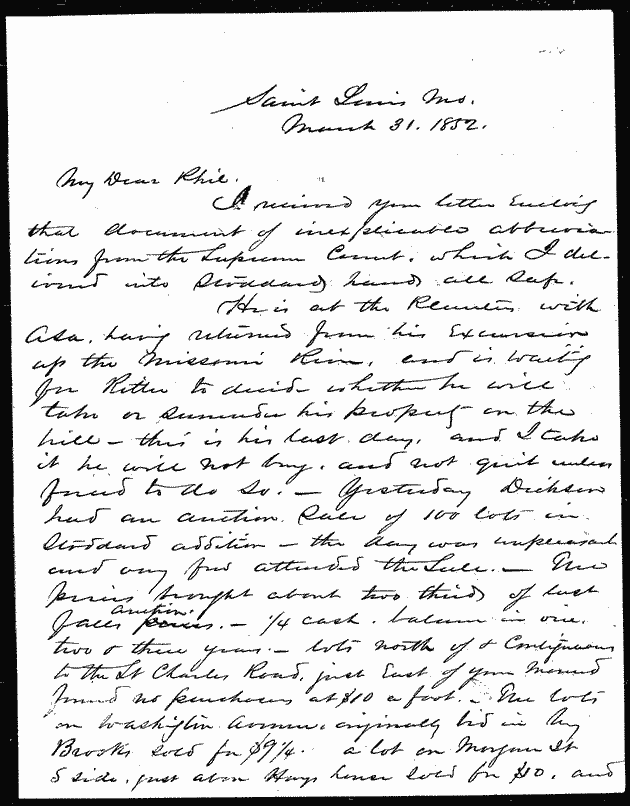 Saint Louis Mo.
March 31. 1852.
My Dear Phil.
I received your letter Enclosig
that document of inexplicable abbrevia-
tions from the Supreme Court. which I del-
ivered into Stoddards hands all safe.
He is at the Planters with
Asa. having returned from his Excursion
up the Missouri River, and is waitig
for Ritter to decide whether he will
take or surrender his property on the
hill – this is his last day. and I take
it he will not buy. and not quit unless
forced to do so. – Yesterday Dickson
had an auction Sale of 100 lots in
Stoddard addition – the day was unpleasant
and very few attended the Sale. – The
prices brought about two thirds of last
auction
falls prices. – 1/4 cash. balance in one.
two & three years. – lots north of & Contiguous
to the St Charles Road, just East of your Mound
found no purchasers at $10 a foot. – The lots
on Washigton Avenue, originally bid in by
Brooks sold for $9 1/4. a lot on Morgan St
S side, just above Hays house sold for $10. and